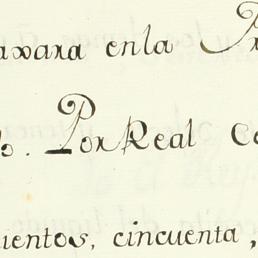 axara enla Pr
o. Por Real Ce
uentos, cincuenta,